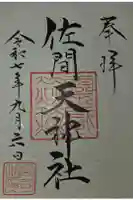 奉拝
佐間天神社
令和七年九月六日